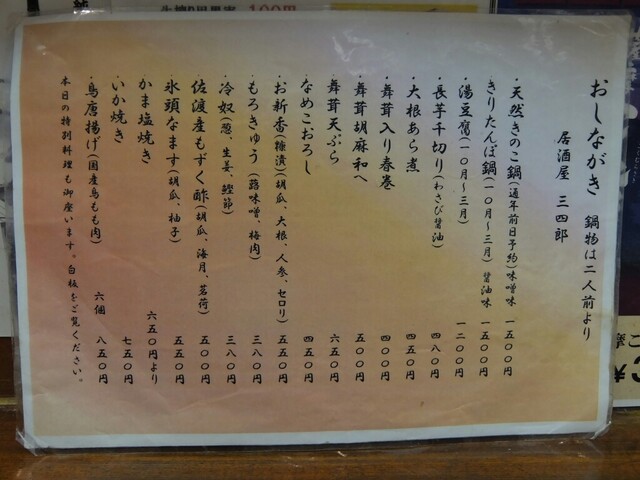 おしながき 鍋物は二人前より
居酒屋 三四郎
・天然きのこ鍋(通年前日予約)味噌味 一五〇〇円
・きりたんぽ鍋(一〇月～三月)醤油味 一五〇〇円
・湯豆腐(一〇月～三月) 一二〇〇円
・長芋千切り(わさび醤油) 四八〇円
・大根あら煮 五〇〇円
・舞茸入り春巻 四〇〇円
・舞茸胡麻和へ 五〇〇円
・舞茸天ぷら 六五〇円
・なめこおろし 四五〇円
・お新香(糠漬)(胡瓜、大根、人参、セロリ) 五五〇円
・もろきゅう(蕗味噌、梅肉) 三八〇円
・冷奴(葱、生姜、鰹節) 三八〇円
佐渡産もずく酢(胡瓜、海月、茗荷) 五〇〇円
・氷頭なます(胡瓜、柚子) 五五〇円
・かま塩焼き 六五〇円より
・いか焼き 七五〇円
・鳥唐揚げ(国産鳥もも肉) 六個 八五〇円
本日の特別料理も御座います。白板をご覧ください。
100円